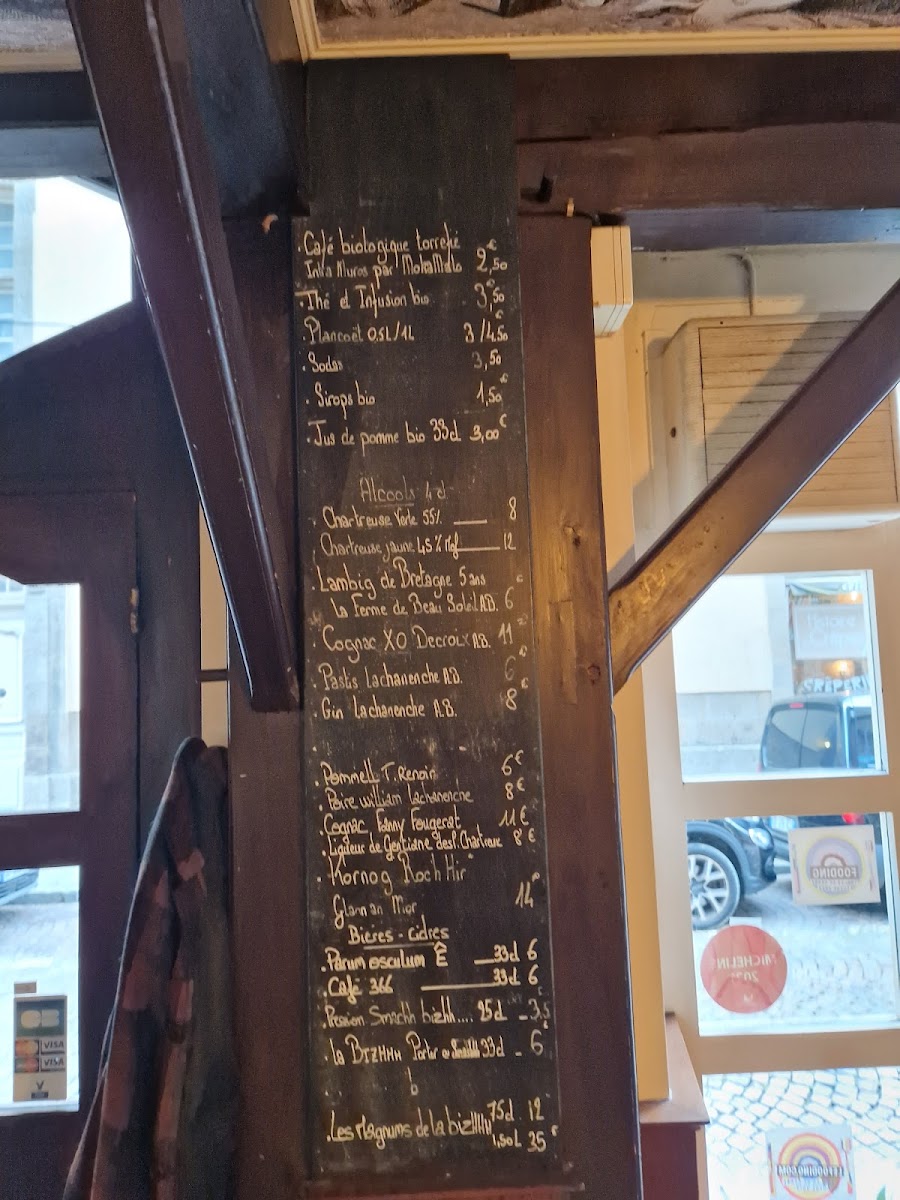 . Café biologique torréfié
Intra Muros par MokaMalo 2,50€
. Thé et Infusion bio 3,50€
. Plancoët 0,5L/1L 3/4,50€
. Sodas 3,50
. Sirops bio 1,50€
. Jus de pomme bio 33cl 3,00€
Alcools 4cl
. Chartreuse Verte 55% 8
. Chartreuse jaune 45% 12
. Lambig de Bretagne 5 ans
La Ferme de Beau Soleil A.B. 6€
. Cognac XO Decroix A.B. 11
. Pastis Lachanenche A.B. 6€
. Gin Lachanenche A.B. 8€
. Pommell T. Renoir 6€
. Poire william lachanenche 8€
. Cognac Fanny Fougerat 11€
. Liqueur de Gentiane desf. Chartreux 8€
. Kornog Roch Hir
Glann an Mor 14€
Bières - Cidres
. Parum osculum Ê 33cl 6
. Café 366 33cl 6
. Pression Smachh bizhh.... 25cl - 3,5
. La BIZHHH Porter 33cl - 6€
. Les Magnums de la bizhhh 75cl . 12
1,50L 35€
FOODING
MICHELIN
VISA
VISA
LEFOODING.COM